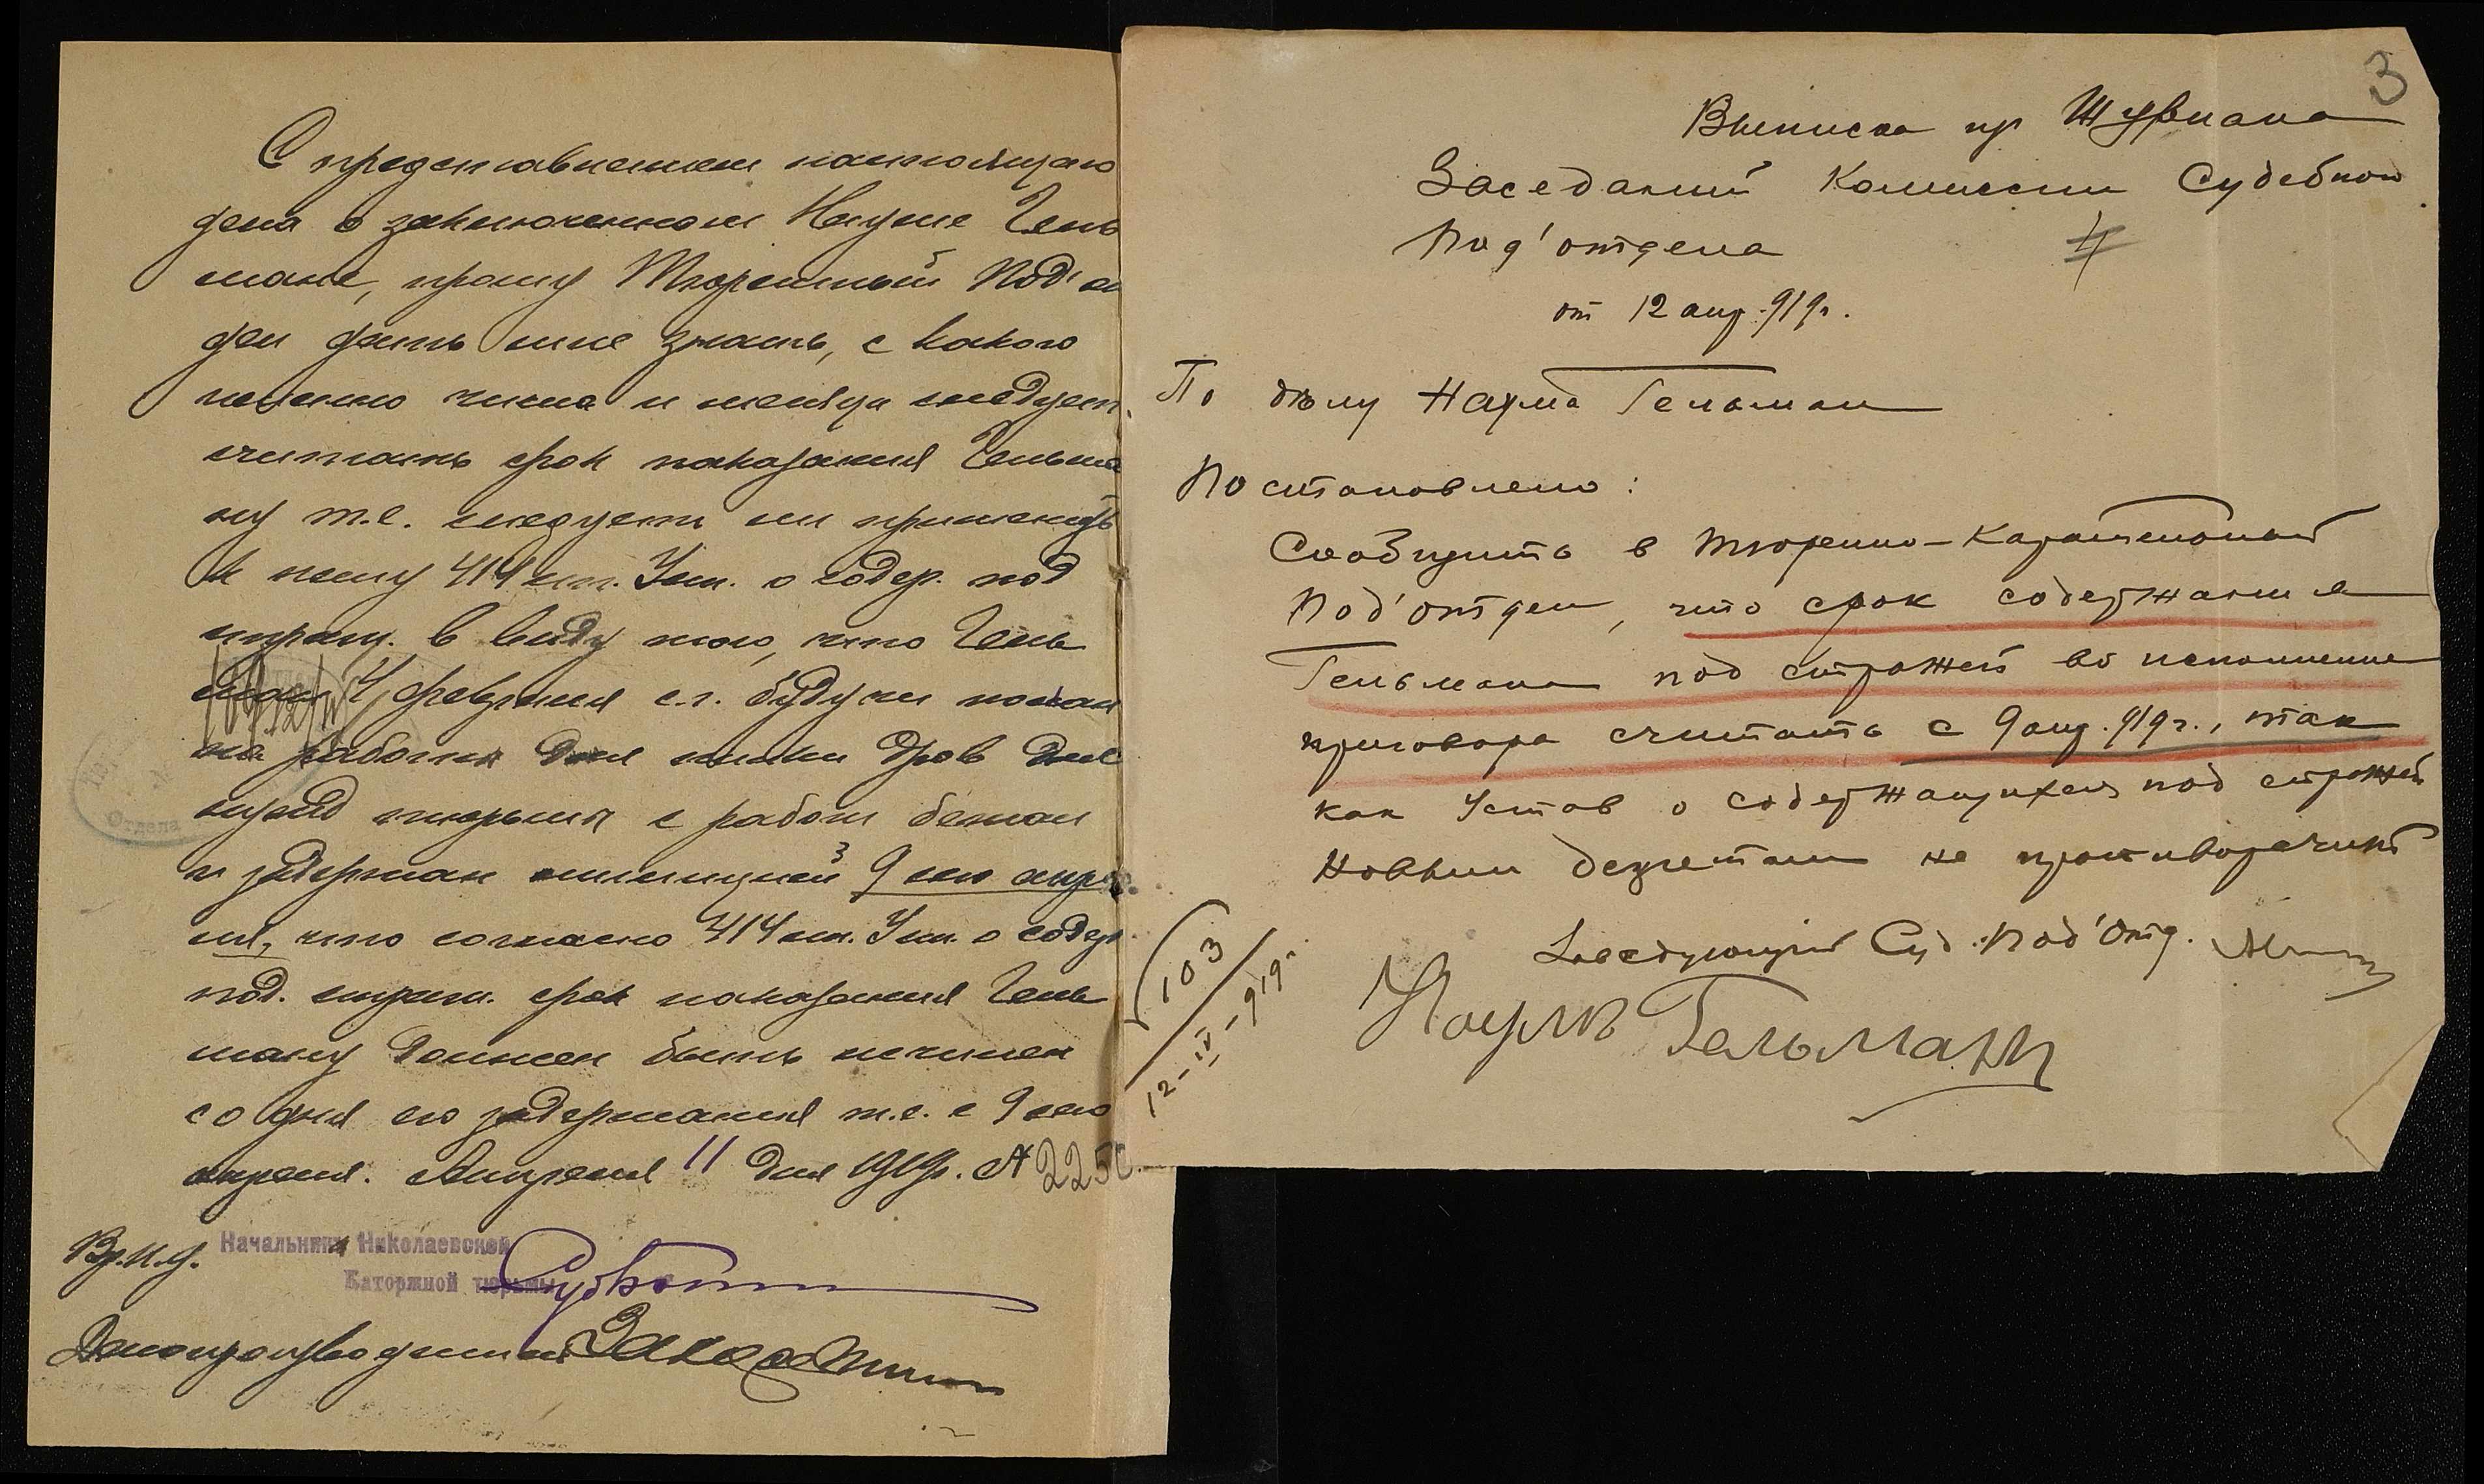 С представлением настоящаго
дела о заключенном Науме Гель
мане, прошу Тюремный Под'от
дел дать мне знать, с какого
именно числа и месяца следует
считать срок наказания Гельма
ну т.е. следует ли применить
к нему 414 ст. Уст. о содер. под
страж. в виду того, что Гель
ман 4 февраля с.г. будучи послан
на работы для пилки дров для
нужд тюрьмы с работ бежал
и задержан милицией 9 сего апре
ля, что согласно 414 ст. Уст. о содер
под. страж. срок наказания Гель
ману должен быть исчислен
со дня его задержания т.е. с 9 сего
апреля. Апреля 11 дня 1919г. № 2250
Вр.и.д. Начальника Николаевской
Каторжной тюрьмы
Делопроизводитель
Отдела
3
Выписка из Журнала
Заседаний Комиссии Судебного
Под'отдела
от 12 апр. 919г.
По делу Наума Гельман
Постановлено:
Сообщить в Тюремно-Карательный
Под'отдел, что срок содержания
Гельмана под стражей во исполнение
приговора считать с 9 апр. 919г., так
как Устав о содержащихся под стражей
новым декретам не противоречит
Заведующий Суд. Под'Отд.
103
12-IV-919г.
Наумъ Гельманъ